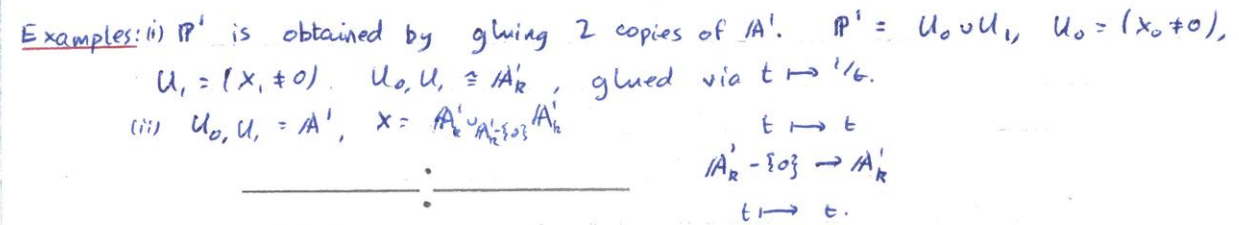 Examples: (i) ℙ¹ is obtained by gluing 2 copies of 𝔸¹. ℙ¹ = U₀ ∪ U₁, U₀ = (X₀ ≠ 0),
U₁ = (X₁ ≠ 0). U₀, U₁ ≅ 𝔸¹ₖ, glued via t ↦ 1/t.
(ii) U₀, U₁ = 𝔸¹, X = 𝔸¹ₖ ∪_{𝔸¹ₖ-{0}} 𝔸¹ₖ
t ↦ t
𝔸¹ₖ - {0} → 𝔸¹ₖ
t ↦ t.